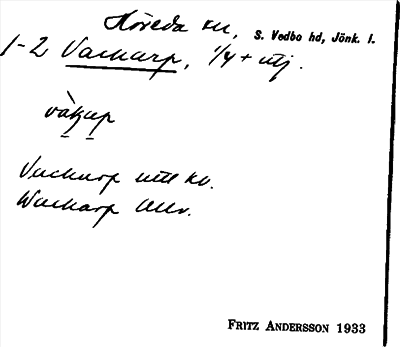 Höreda sn, S. Vedbo hd, Jönk. l.
1-2 Vackarp, 1/4 + utj.
vàkup
Vackarp
Wackarp
FRITZ ANDERSSON 1933